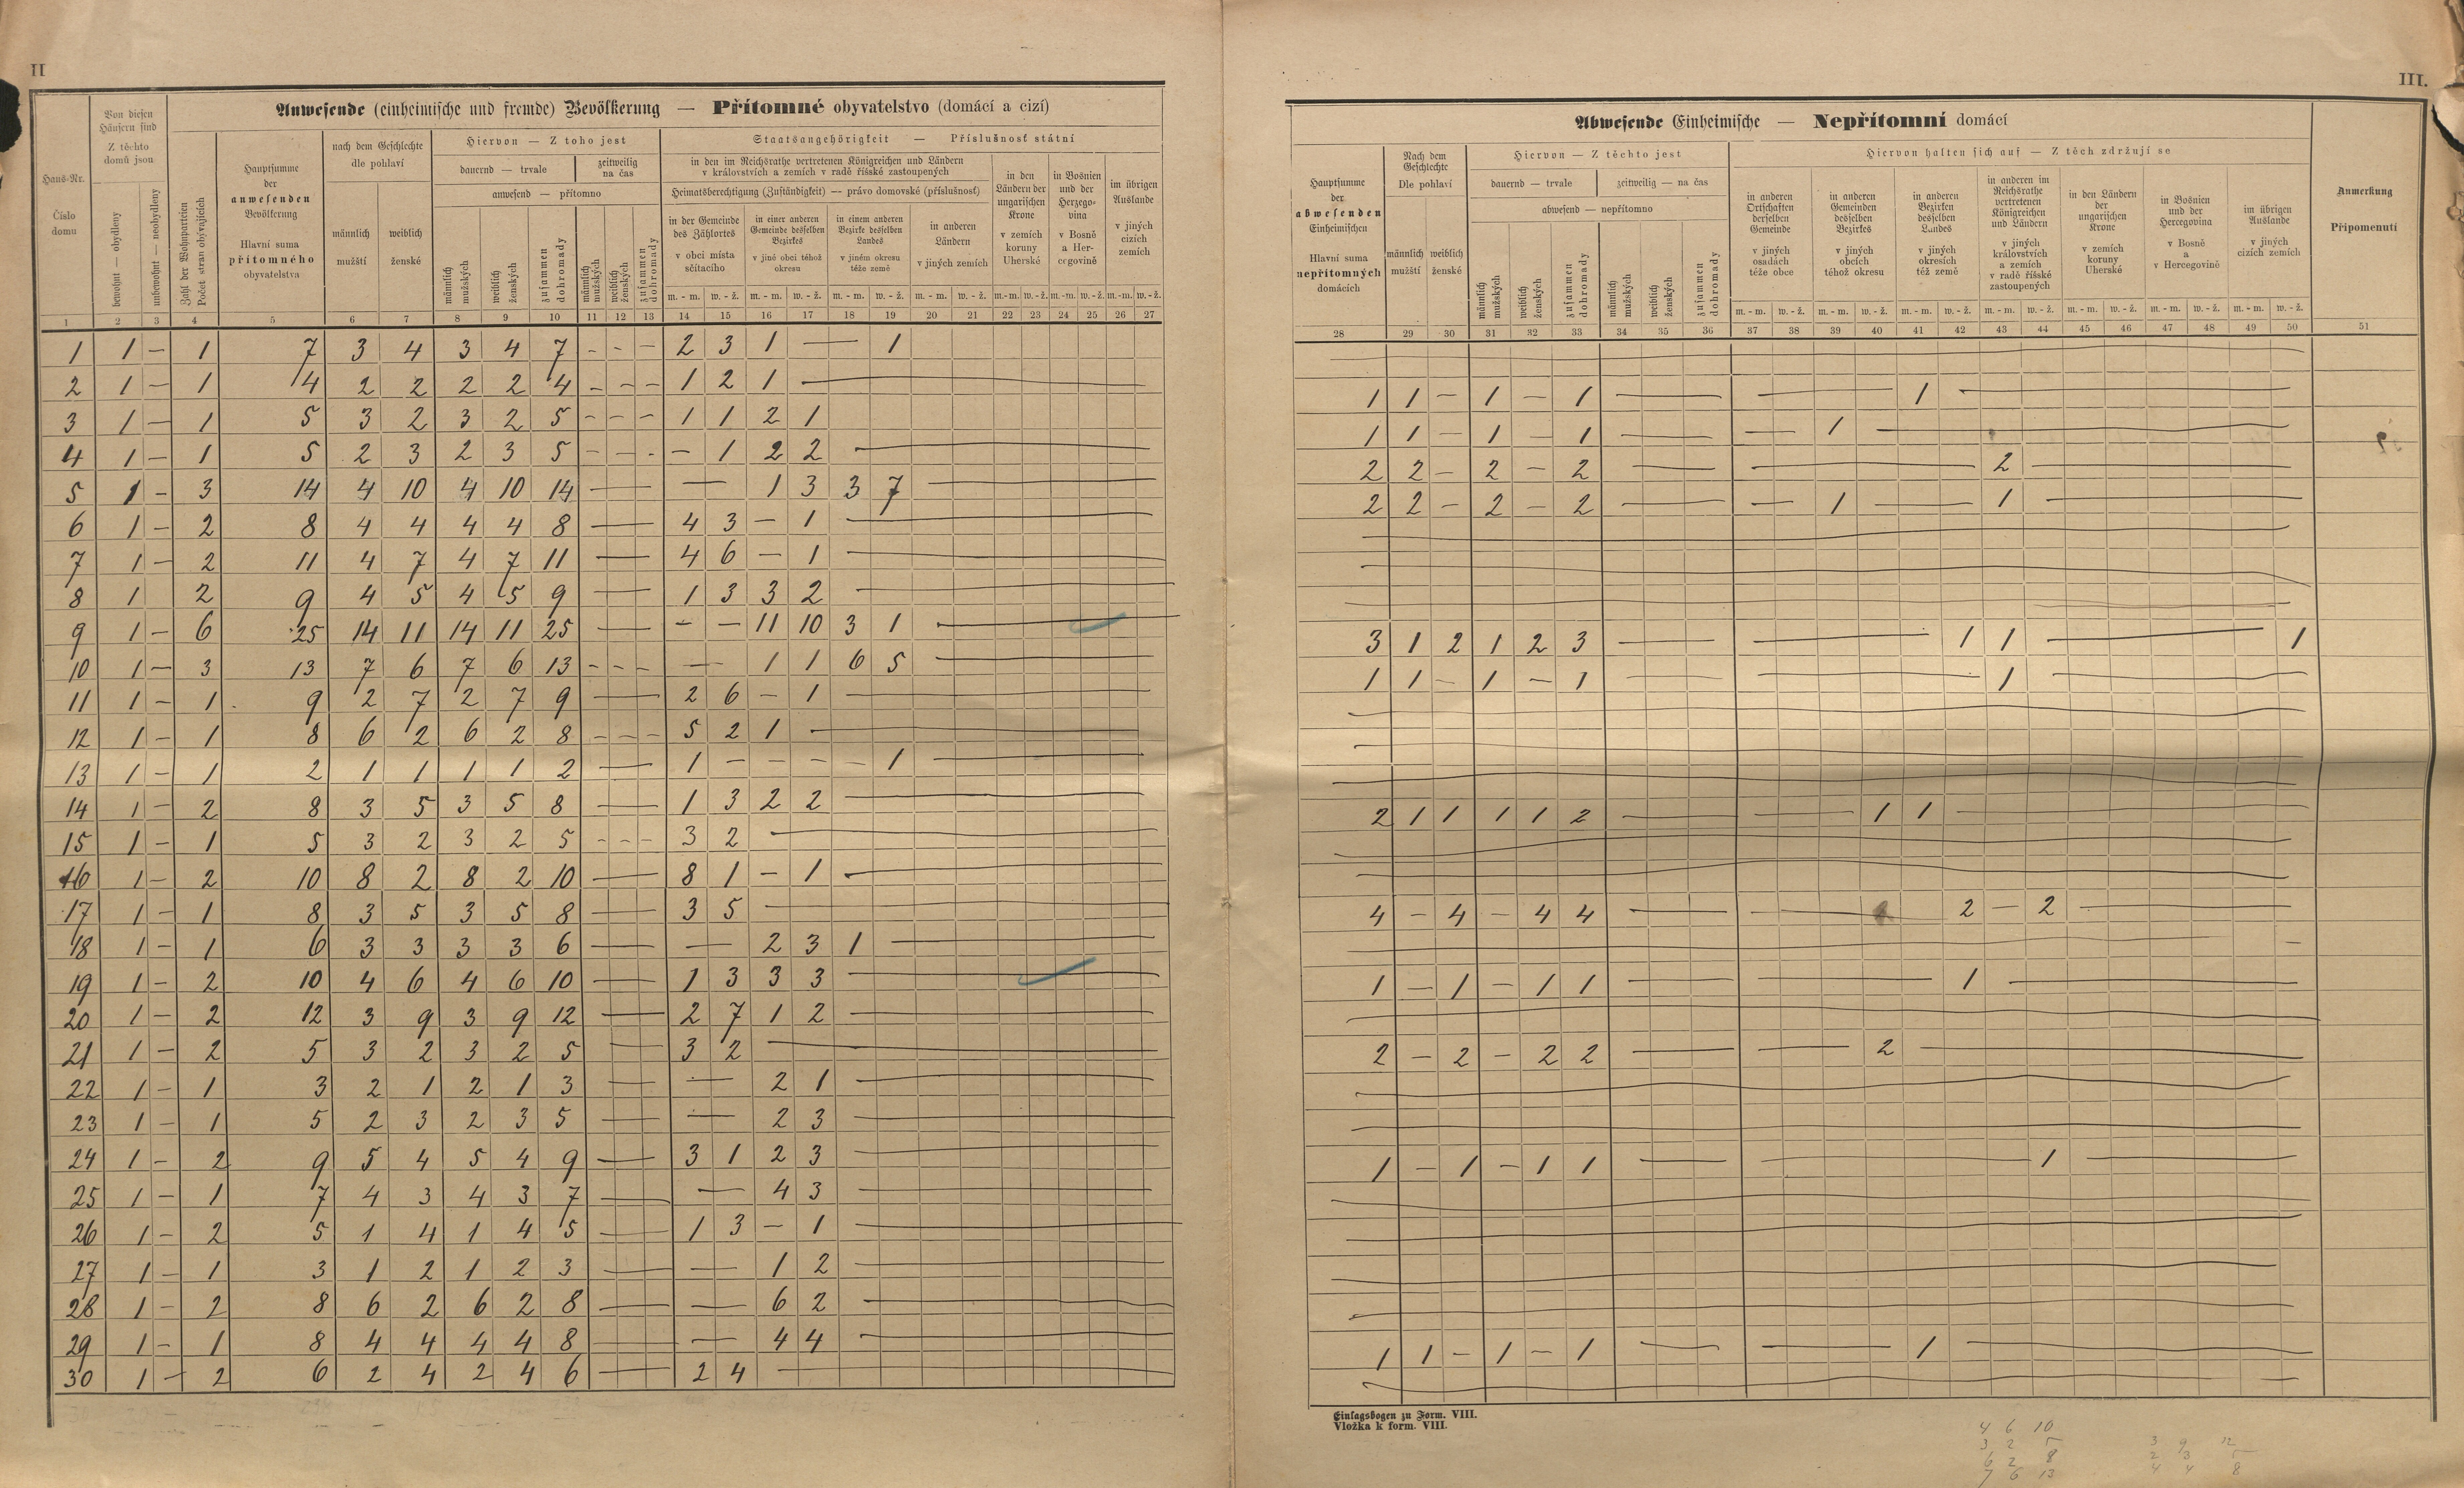 II
III.
Anwesende (einheimische und fremde) Bevölkerung — Přítomné obyvatelstvo (domácí a cizí)
Haus-Nr.
Číslo domu
Von diesen Häusern sind
Z těchto domů jsou
bewohnt — obydleny
unbewohnt — neobydleny
Zahl der Wohnparteien
Počet stran obývajících
Hauptsumme der anwesenden Bevölkerung
Hlavní suma přítomného obyvatelstva
nach dem Geschlechte
dle pohlaví
männlich mužští
weiblich ženské
Hiervon — Z toho jest
dauernd — trvale
zeitweilig na čas
anwesend — přítomno
männlich mužských
weiblich ženských
zusammen dohromady
männlich mužských
weiblich ženských
zusammen dohromady
Staatsangehörigkeit — Příslušnosť státní
in den im Reichsrathe vertretenen Königreichen und Ländern
v královstvích a zemích v radě říšské zastoupených
Heimatsberechtigung (Zuständigkeit) — právo domovské (příslušnosť)
in der Gemeinde des Zählortes
v obci místa sčítacího
in einer anderen Gemeinde desselben Bezirkes
v jiné obci téhož okresu
in einem anderen Bezirke desselben Landes
v jiném okresu téže země
in anderen Ländern
v jiných zemích
in den Ländern der ungarischen Krone
v zemích koruny Uherské
in Bosnien und der Herzegovina
v Bosně a Hercegovině
im übrigen Auslande
v jiných cizích zemích
m. - m. w. - ž. m. - m. w. - ž. m. - m. w. - ž. m. - m. w. - ž. m.-m. w.-ž. m.-m. w.-ž. m.-m. w.-ž.
1 2 3 4 5 6 7 8 9 10 11 12 13 14 15 16 17 18 19 20 21 22 23 24 25 26 27
1 1 — 1 7 3 4 3 4 7 - - - 2 3 1 — 1
2 1 — 1 4 2 2 2 2 4 - - - 1 2 1 —
3 1 — 1 5 3 2 3 2 5 - - - 1 1 2 1
4 1 — 1 5 2 3 2 3 5 - - - — 1 2 2 —
5 1 - 3 14 4 10 4 10 14 — — 1 3 3 7 —
6 1 — 2 8 4 4 4 4 8 — 4 3 — 1 —
7 1 — 2 11 4 7 4 7 11 — 4 6 — 1 —
8 1 2 9 4 5 4 5 9 — 1 3 3 2 —
9 1 — 6 25 14 11 14 11 25 — — — 11 10 3 1 —
10 1 — 3 13 7 6 7 6 13 - - - — 1 1 6 5 —
11 1 - 1 9 2 7 2 7 9 — 2 6 — 1 —
12 1 — 1 8 6 2 6 2 8 - - - 5 2 1 —
13 1 — 1 2 1 1 1 1 2 — 1 - - - - 1 —
14 1 — 2 8 3 5 3 5 8 — 1 3 2 2 —
15 1 — 1 5 3 2 3 2 5 - - - 3 2 —
16 1 — 2 10 8 2 8 2 10 — 8 1 — 1 —
17 1 — 1 8 3 5 3 5 8 — 3 5 —
18 1 — 1 6 3 3 3 3 6 — — 2 3 1 —
19 1 — 2 10 4 6 4 6 10 — 1 3 3 3 —
20 1 — 2 12 3 9 3 9 12 — 2 7 1 2 —
21 1 — 2 5 3 2 3 2 5 — 3 2 —
22 1 — 1 3 2 1 2 1 3 — — 2 1 —
23 1 — 1 5 2 3 2 3 5 — — 2 3 —
24 1 — 2 9 5 4 5 4 9 — 3 1 2 3 —
25 1 — 1 7 4 3 4 3 7 — — 4 3 —
26 1 — 2 5 1 4 1 4 5 — 1 3 — 1 —
27 1 — 1 3 1 2 1 2 3 — — 1 2 —
28 1 — 2 8 6 2 6 2 8 — — 6 2 —
29 1 — 1 8 4 4 4 4 8 — — 4 4 —
30 1 — 2 6 2 4 2 4 6 — 2 4 —
Abwesende Einheimische — Nepřítomní domácí
Hauptsumme der abwesenden Einheimischen
Hlavní suma nepřítomných domácích
Nach dem Geschlechte
Dle pohlaví
männlich mužští
weiblich ženské
Hiervon — Z těchto jest
dauernd — trvale
zeitweilig — na čas
abwesend — nepřítomno
männlich mužských
weiblich ženských
zusammen dohromady
männlich mužských
weiblich ženských
zusammen dohromady
Hiervon halten sich auf — Z těch zdržují se
in anderen Ortschaften derselben Gemeinde
v jiných osadách téže obce
in anderen Gemeinden desselben Bezirkes
v jiných obcích téhož okresu
in anderen Bezirken desselben Landes
v jiných okresích též země
in anderen im Reichsrathe vertretenen Königreichen und Ländern
v jiných královstvích a zemích v radě říšské zastoupených
in den Ländern der ungarischen Krone
v zemích koruny Uherské
in Bosnien und der Hercegovina
v Bosně a v Hercegovině
im übrigen Auslande
v jiných cizích zemích
Anmerkung
Připomenutí
m. - m. w. - ž. m. - m. w. - ž. m. - m. w. - ž. m. - m. w. - ž. m. - m. w. - ž. m. - m. w. - ž. m. - m. w. - ž.
28 29 30 31 32 33 34 35 36 37 38 39 40 41 42 43 44 45 46 47 48 49 50 51
1 1 — 1 — 1 — — 1 —
1 1 — 1 — 1 — — 1 —
2 2 — 2 — 2 — — 2 —
2 2 — 2 — 2 — — 1 — 1 —
3 1 2 1 2 3 — — 1 1 — 1
1 1 — 1 — 1 — — 1 —
2 1 1 1 1 2 — — 1 1 —
4 — 4 — 4 4 — — 2 — 2 —
1 — 1 — 1 1 — — 1 —
2 — 2 — 2 2 — — 2 —
1 — 1 — 1 1 — — 1 —
1 1 — 1 — 1 — — 1 —
Einlagsbogen zu Form. VIII.
Vložka k form. VIII.
4 6 10
3 2 5
6 2 8
7 6 13
3 9 12
2 3 5
4 4 8